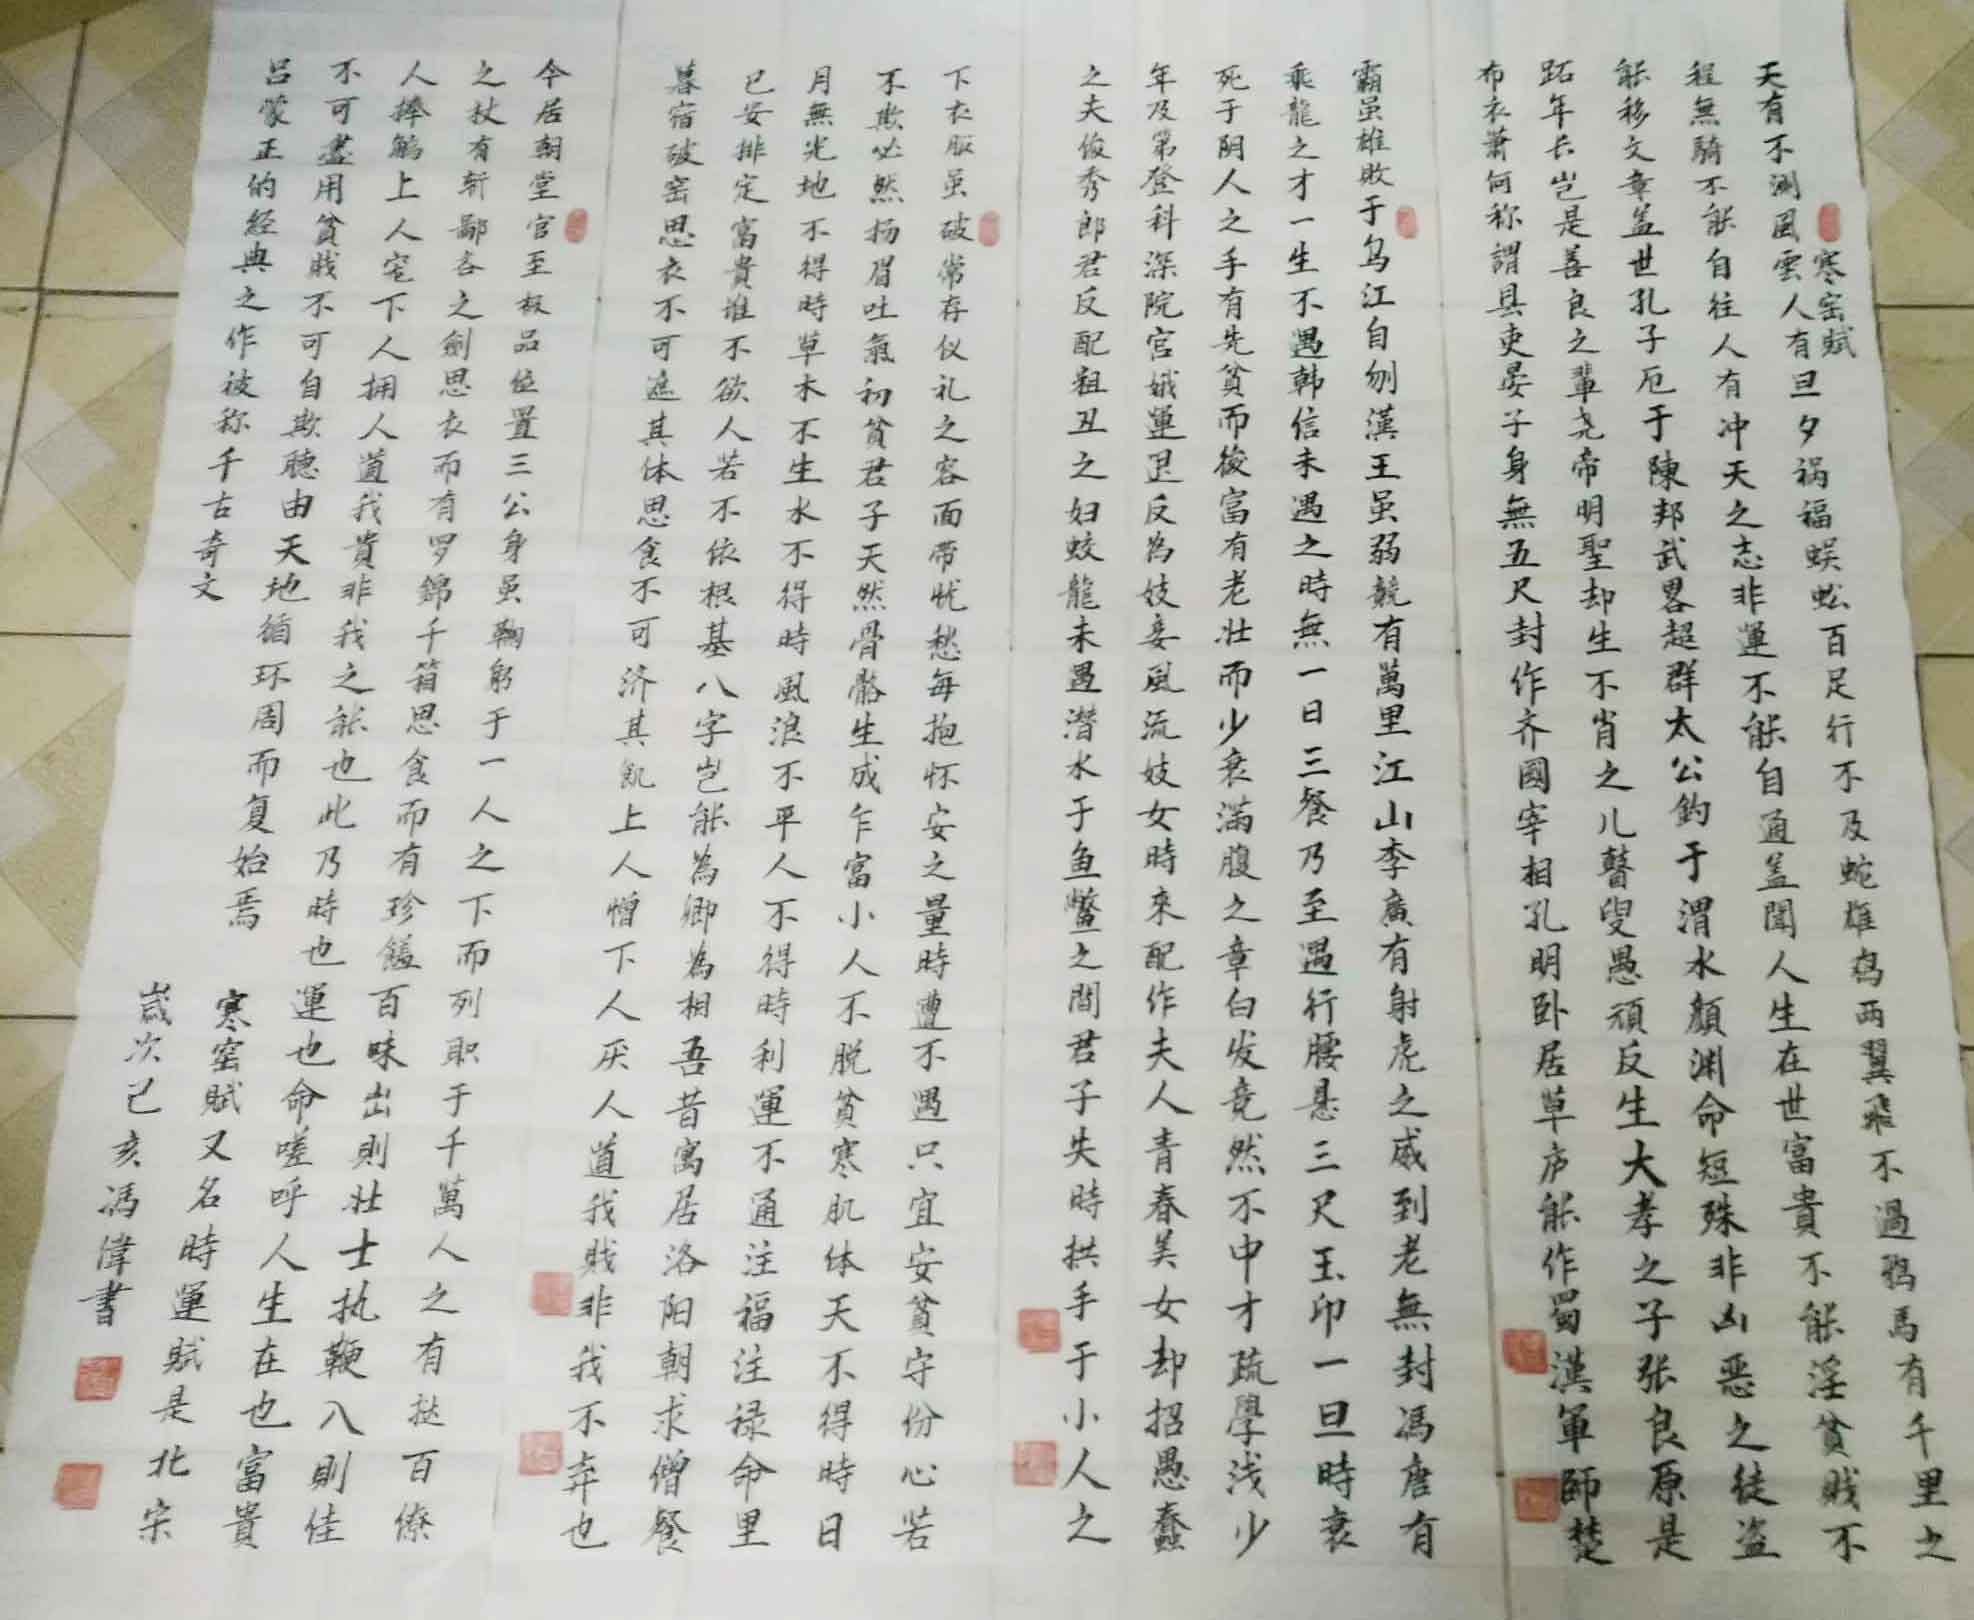 寒窑賦
天有不測風雲人有旦夕祸福蜈蚣百足行不及蛇雄鸡两翼飛不過鴉馬有千里之
程無騎不能自往人有冲天之志非運不能自通盖聞人生在世富貴不能淫貧賎不
能移文章盖世孔子厄于陳邦武畧超群太公釣于渭水顏渊命短殊非凶恶之徒盗
跖年长岂是善良之輩尧帝明聖却生不肖之儿瞽叟愚頑反生大孝之子张良原是
布衣蕭何称謂县吏晏子身無五尺封作齐國宰相孔明卧居草庐能作蜀漢軍師楚
霸虽雄敗于乌江自刎漢王虽弱競有萬里江山李廣有射虎之威到老無封馮唐有
乘龍之才一生不遇韩信未遇之時無一日三餐乃至遇行腰悬三尺玉印一旦時衰
死于阴人之手有先貧而後富有老壮而少衰滿腹之章白发竟然不中才疏學浅少
年及第登科深院宫娥運退反為妓妾風流妓女時來配作夫人青春美女却招愚蠢
之夫俊秀郎君反配粗丑之妇蛟龍未遇潜水于鱼鱉之間君子失時拱手于小人之
下衣服虽破常存仪礼之容面带忧愁每抱怀安之量時遭不遇只宜安貧守份心若
不欺必然扬眉吐氣初貧君子天然骨骼生成乍富小人不脱貧寒肌体天不得時日
月無光地不得時草木不生水不得時風浪不平人不得時利運不通注福注禄命里
已安排定富貴谁不欲人若不依根基八字岂能為卿為相吾昔寓居洛阳朝求僧餐
暮宿破窑思衣不可遮其体思食不可济其飢上人憎下人厌人道我賎非我不弃也
今居朝堂官至极品位置三公身虽鞠躬于一人之下而列职于千萬人之有挞百僚
之杖有斩鄙吝之劍思衣而有罗錦千箱思食而有珍饈百味出則壮士执鞭入則佳
人捧觞上人宠下人拥人道我貴非我之能也此乃時也運也命嗟呼人生在也富貴
不可盡用貧賎不可自欺聽由天地循环周而复始焉
寒窑賦又名時運賦是北宋
吕蒙正的经典之作被称千古奇文
歲次己亥馮偉書